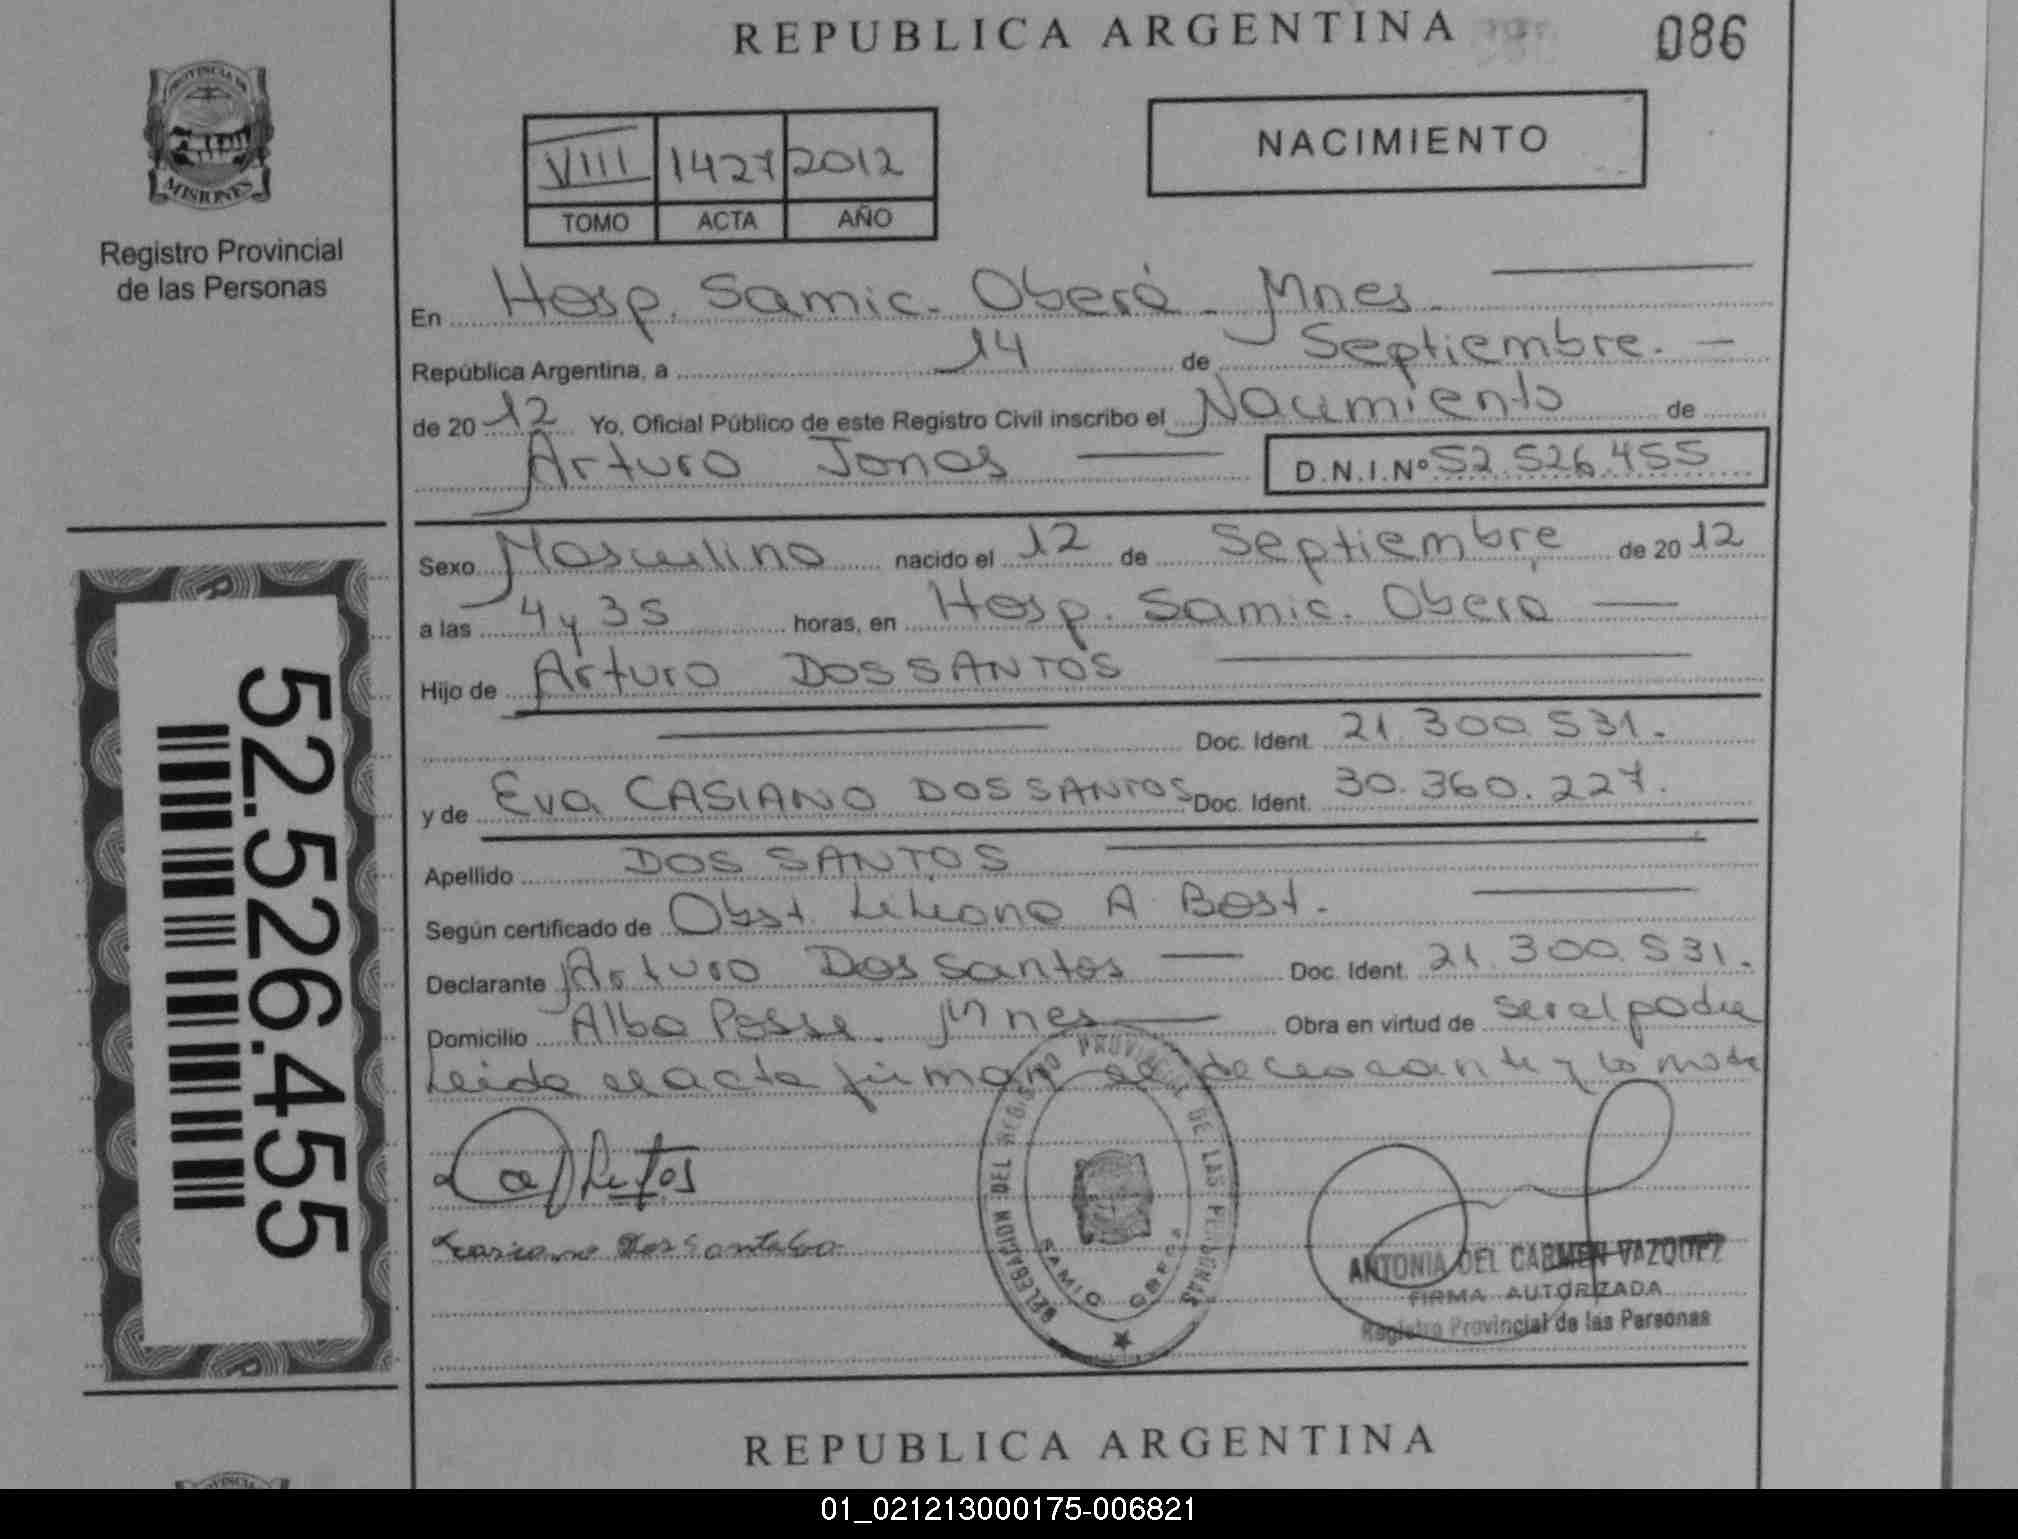 REPUBLICA ARGENTINA
086
PROVINCIA DE
MISIONES
Registro Provincial
de las Personas
VIII 1427 2012
TOMO ACTA AÑO
NACIMIENTO
En Hosp. Samic. Oberá - Mnes -
República Argentina, a 14 de Septiembre. -
de 2012 Yo, Oficial Público de este Registro Civil inscribo el Nacimiento de
Arturo Jonas D.N.I.Nº 52.526.455
Sexo Masculino nacido el 12 de Septiembre de 2012
a las 4 y 35 horas, en Hosp. Samic. Oberá
Hijo de Arturo DOS SANTOS
Doc. Ident. 21.300.531.
y de Eva CASIANO DOS SANTOS Doc. Ident. 30.360.227.
Apellido DOS SANTOS
Según certificado de Obst. Liliana A. Bost.
Declarante Arturo Dos Santos Doc. Ident. 21.300.531.
Domicilio Alba Posse. Mnes Obra en virtud de ser el padre
Leida el acta firman el declarante y la madre
52.526.455
DELEGACION DEL REGISTRO PROVINCIAL DE LAS PERSONAS
SAMIC OBERA
ANTONIA DEL CARMEN VAZQUEZ
FIRMA AUTORIZADA
Registro Provincial de las Personas
REPUBLICA ARGENTINA
01_021213000175-006821